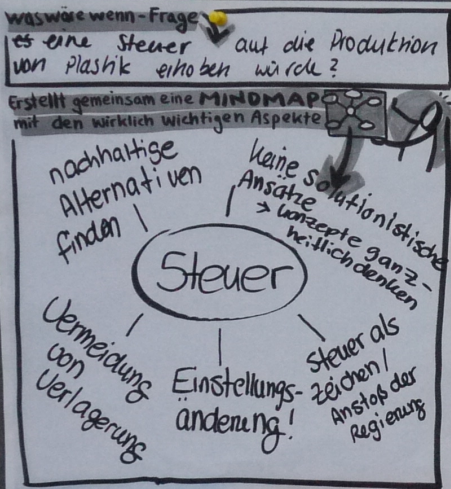 was wäre wenn - Frage
es eine Steuer auf die Produktion
von Plastik erhoben würde?
Erstellt gemeinsam eine MINDMAP
mit den wirklich wichtigen Aspekte
nachhaltige
Alternativen
finden
keine solutionistische
Ansätze
→ Konzepte ganz-
heitlich denken
Steuer
Vermeidung
von
Verlagerung
Einstellungs-
änderung!
Steuer als
Zeichen/
Anstoß der
Regierung